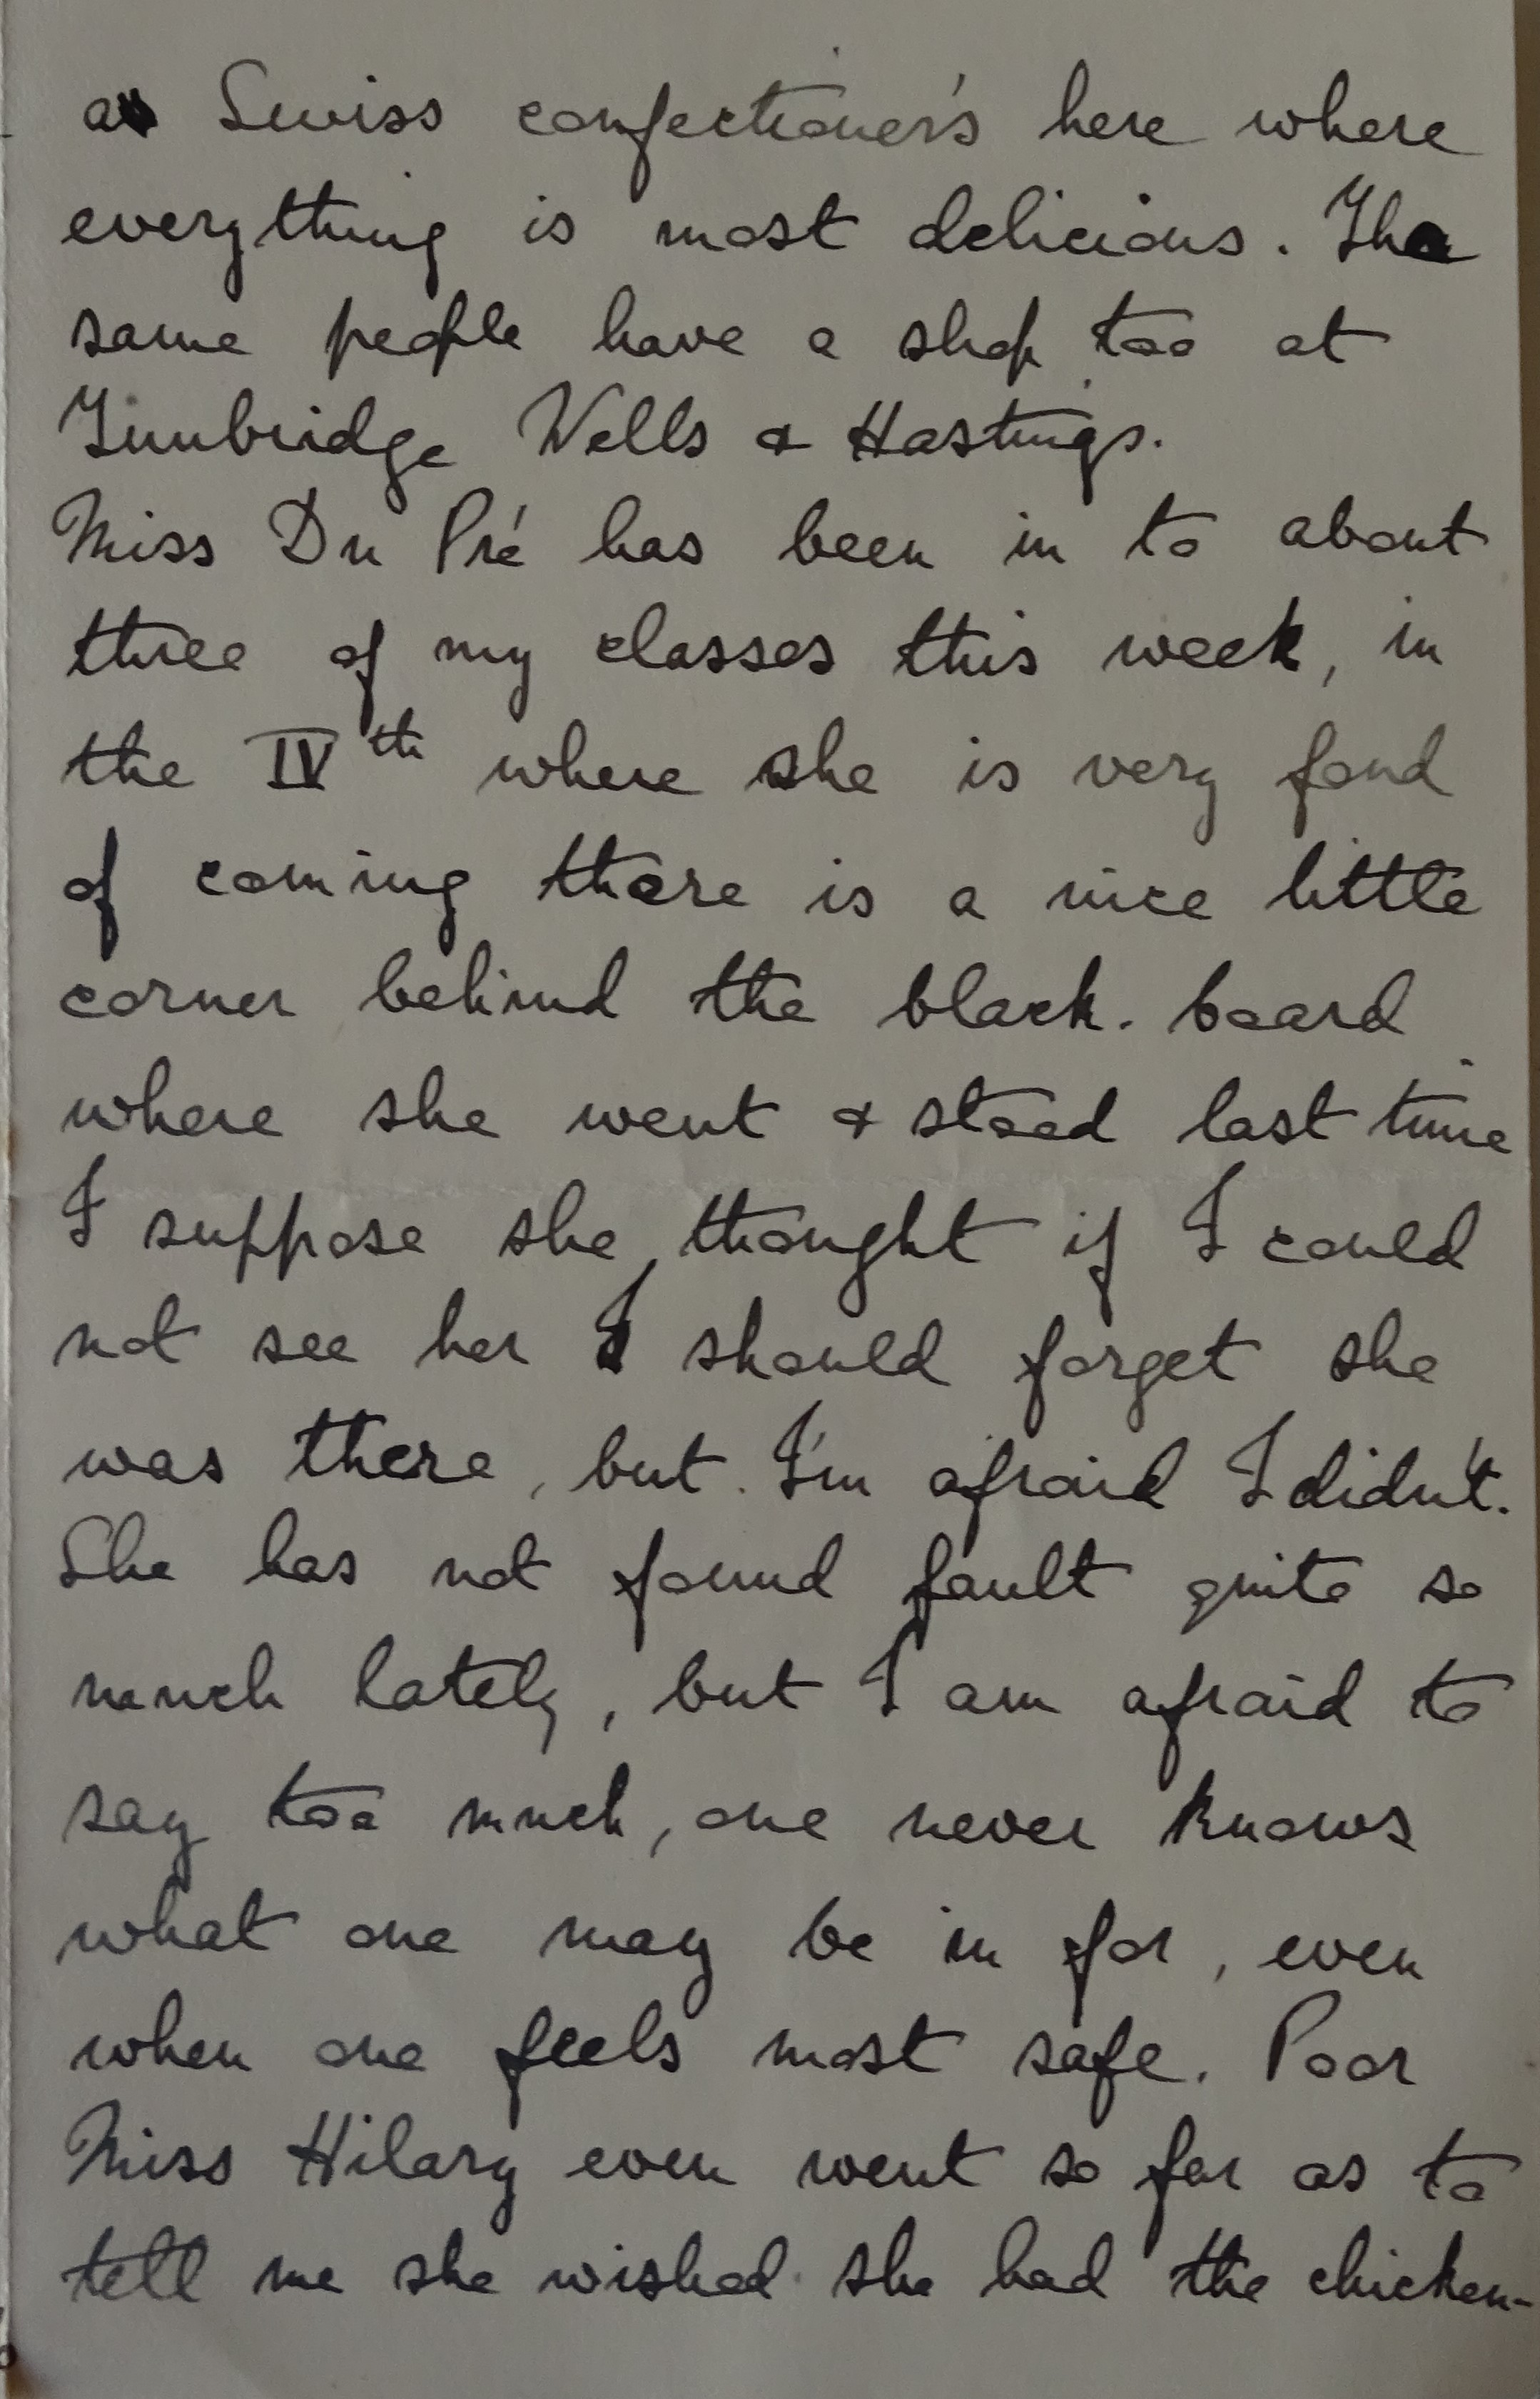 a Swiss confectioner's here where
everything is most delicious. The
same people have a shop too at
Tunbridge Wells & Hastings.
Miss Du Pré has been in to about
three of my classes this week, in
the IVth where she is very fond
of coming there is a nice little
corner behind the black-board
where she went & stood last time
I suppose she thought if I could
not see her I should forget she
was there, but I'm afraid I didn't.
She has not found fault quite so
much lately, but I am afraid to
say too much, one never knows
what one may be in for, even
when one feels most safe. Poor
Miss Hilary even went so far as to
tell me she wished she had the chicken-